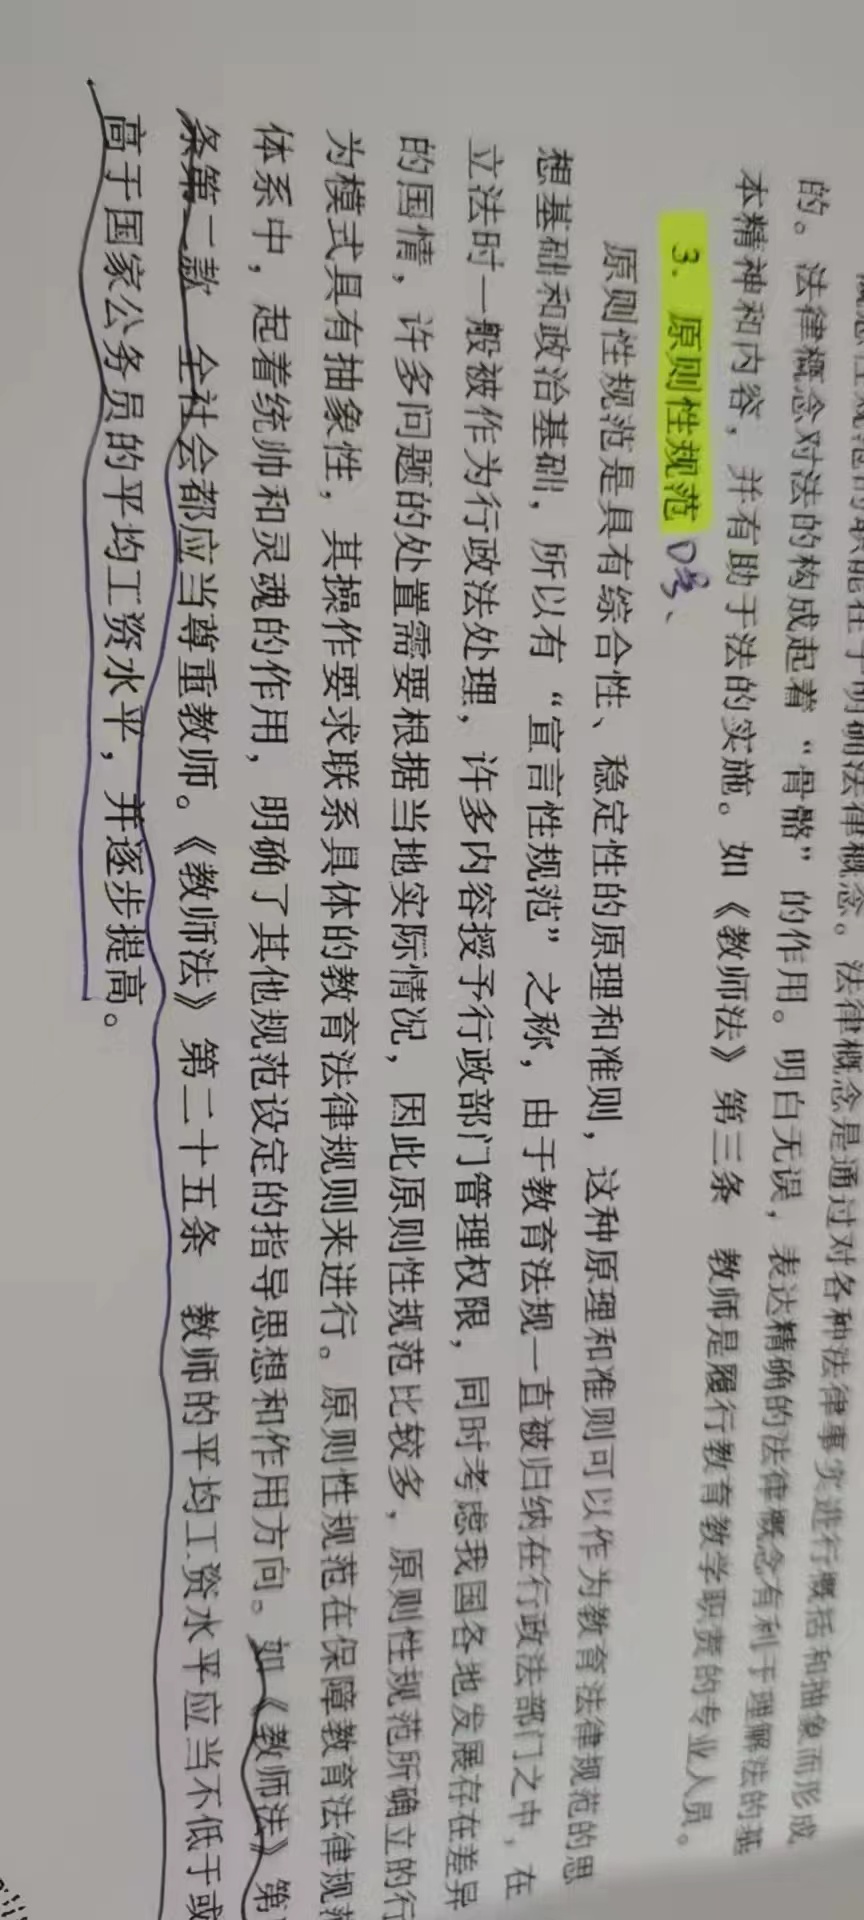 概念性规范的职能在于明确法律概念。法律概念是通过对各种法律事实进行概括和抽象而形成
的。法律概念对法的构成起着“骨骼”的作用。明白无误，表达精确的法律概念有利于理解法的基
本精神和内容，并有助于法的实施。如《教师法》第三条 教师是履行教育教学职责的专业人员。
3. 原则性规范
原则性规范是具有综合性、稳定性的原理和准则，这种原理和准则可以作为教育法律规范的思
想基础和政治基础，所以有“宣言性规范”之称，由于教育法规一直被归纳在行政法部门之中，在
立法时一般被作为行政法处理，许多内容授予行政部门管理权限，同时考虑我国各地发展存在差异
的国情，许多问题的处置需要根据当地实际情况，因此原则性规范比较多，原则性规范所确立的行
为模式具有抽象性，其操作要求联系具体的教育法律规则来进行。原则性规范在保障教育法律规范
体系中，起着统帅和灵魂的作用，明确了其他规范设定的指导思想和作用方向。如《教师法》第
条第二款 全社会都应当尊重教师。《教师法》第二十五条 教师的平均工资水平应当不低于或
高于国家公务员的平均工资水平，并逐步提高。